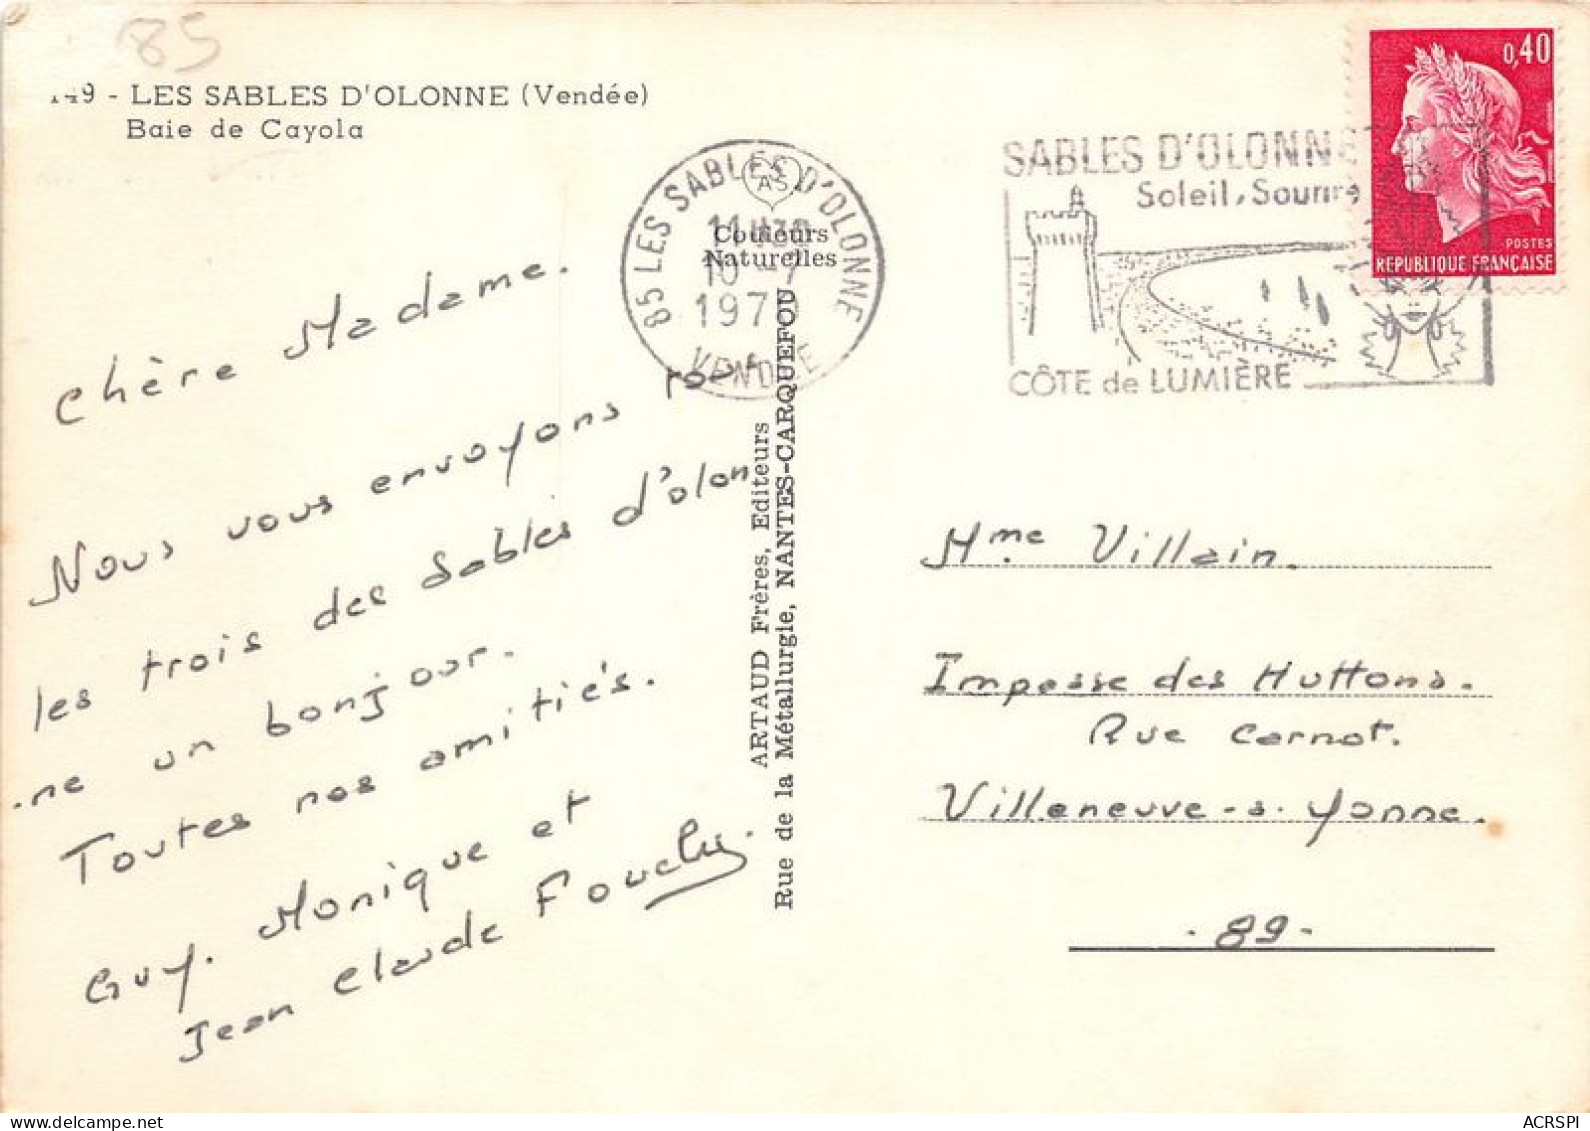 85
149 - LES SABLES D'OLONNE (Vendée)
Baie de Cayola
85 LES SABLES D'OLONNE
AS
11H30
10 -7
1970
VENDÉE
Couleurs
Naturelles
SABLES D'OLONNE
Soleil, Sourire
CÔTE de LUMIÈRE
0,40
POSTES
REPUBLIQUE FRANÇAISE
Chère Madame.
Nous vous envoyons tous
les trois des Sables d'olon
-ne un bonjour.
Toutes nos amitiés.
Guy. Monique et
Jean Claude Fouchy.
ARTAUD Frères, Editeurs
Rue de la Métallurgie, NANTES-CARQUEFOU
Mme Villain.
Impasse des Huttons.
Rue Carnot.
Villeneuve-s-Yonne.
- 89 -
delcampe.net
ACRSPI